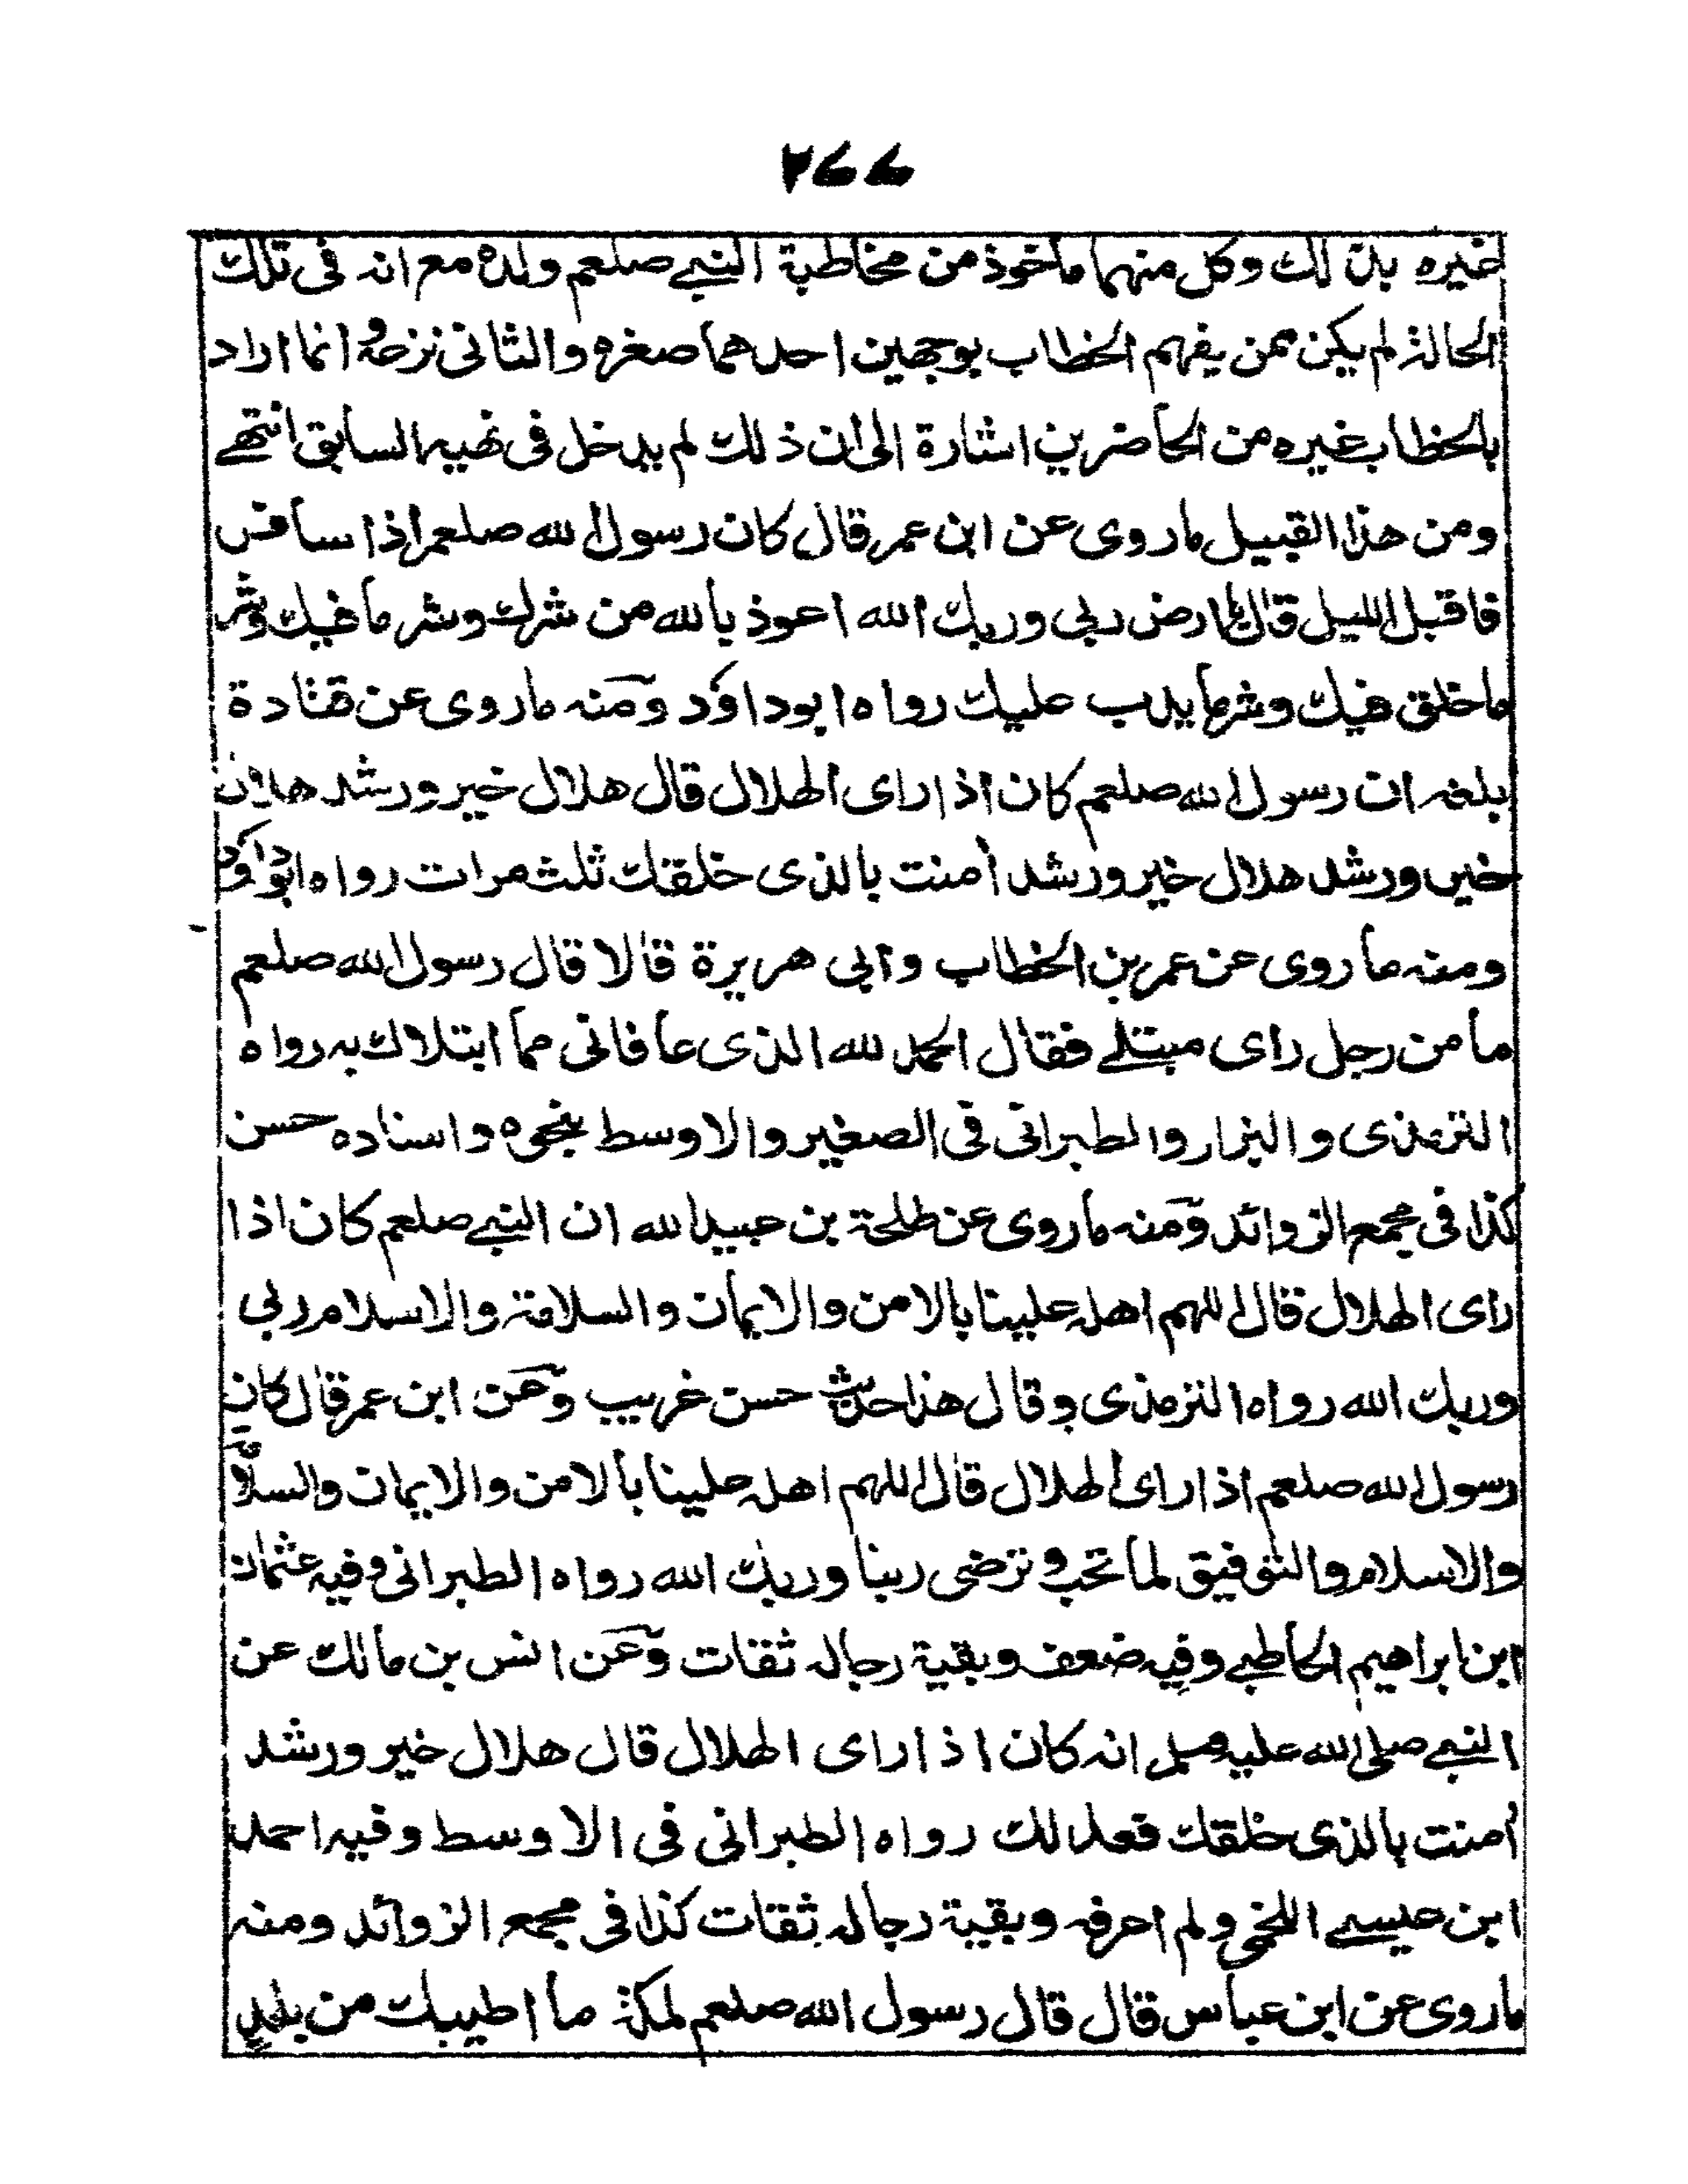 ٢٦٦
غيره بذلك وكل منهما ماخوذ من مخاطبة النبي صلعم ولده مع انه في تلك
الحالة لم يكن ممن يفهم الخطاب بوجهين احدهما صغره والثاني نزعه وانما اراد
بالخطاب غيره من الحاضرين اشارة الى ان ذلك لم يدخل في نهيه السابق انتهى
ومن هذا القبيل ما روى عن ابن عمر قال كان رسول الله صلعم اذا سافر
فاقبل الليل قال يا ارض ربي وربك الله اعوذ بالله من شرك وشر ما فيك وشر
ما خلق فيك وشر ما يدب عليك رواه ابوداؤد ومنه ما روى عن قتادة
بلغه ان رسول الله صلعم كان اذا راى الهلال قال هلال خير ورشد هلال
خير ورشد هلال خير ورشد أمنت بالذى خلقك ثلث مرات رواه ابوداؤد
ومنه ما روى عن عمر بن الخطاب وابي هريرة قالا قال رسول الله صلعم
ما من رجل راى مبتلى فقال الحمد لله الذى عافاني مما ابتلاك به رواه
الترمذى والبزار والطبراني في الصغير والاوسط بنحوه واسناده حسن
كذا في مجمع الزوائد ومنه ما روى عن طلحة بن عبيد الله ان النبي صلعم كان اذا
راى الهلال قال اللهم اهله علينا بالامن والايمان والسلامة والاسلام ربي
وربك الله رواه الترمذى وقال هذا حديث حسن غريب وعن ابن عمر قال كان
رسول الله صلعم اذا راى الهلال قال اللهم اهله علينا بالامن والايمان والسلامة
والاسلام والتوفيق لما تحب وترضى ربنا وربك الله رواه الطبراني وفيه عثمان
ابن ابراهيم الحاطبي وفيه ضعف وبقية رجاله ثقات وعن انس بن مالك عن
النبي صلى الله عليه وسلم انه كان اذا راى الهلال قال هلال خير ورشد
أمنت بالذى خلقك فعدلك رواه الطبراني في الاوسط وفيه احمد
ابن عيسى اللخمي ولم اعرفه وبقية رجاله ثقات كذا في مجمع الزوائد ومنه
ما روى عن ابن عباس قال قال رسول الله صلعم لمكة ما اطيبك من بلد